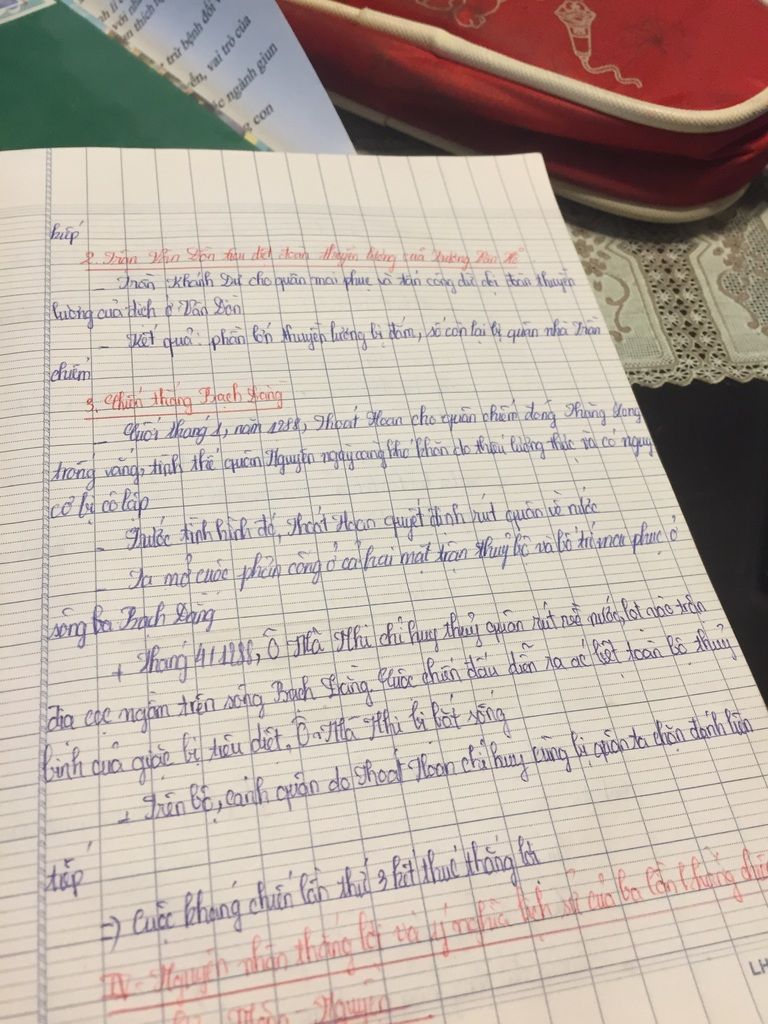 trừ bệnh đối v
ển, vai trò của
ngành giun
con
tiếp
2. Trận Vân Đồn tiêu diệt đoàn thuyền lương của Trương Văn Hổ
- Trần Khánh Dư cho quân mai phục và tấn công dữ dội đoàn thuyền
lương của địch ở Vân Đồn
- Kết quả: phần lớn thuyền lương bị đắm, số còn lại bị quân nhà Trần
chiếm
3. Chiến thắng Bạch Đằng
- Cuối tháng 1, năm 1288, Thoát Hoan cho quân chiếm đóng Thăng Long
trống vắng, tình thế quân Nguyên ngày càng khó khăn do thiếu lương thực và có nguy
cơ bị cô lập
- Trước tình hình đó, Thoát Hoan quyết định rút quân về nước
- Ta mở cuộc phản công ở cả hai mặt trận thuỷ bộ và bố trí mai phục ở
sông Bạch Đằng
+ Tháng 4/1288, Ô Mã Nhi chỉ huy thuỷ quân rút về nước, lọt vào trận
địa cọc ngầm trên sông Bạch Đằng. Cuộc chiến đấu diễn ra ác liệt toàn bộ thuỷ
binh của giặc bị tiêu diệt, Ô Mã Nhi bị bắt sống
+ Trên bộ, cánh quân do Thoát Hoan chỉ huy cũng bị quân ta chặn đánh liên
tiếp
=> Cuộc kháng chiến lần thứ 3 kết thúc thắng lợi
IV - Nguyên nhân thắng lợi và ý nghĩa lịch sử của ba lần kháng chiến
Mông - Nguyên
LH